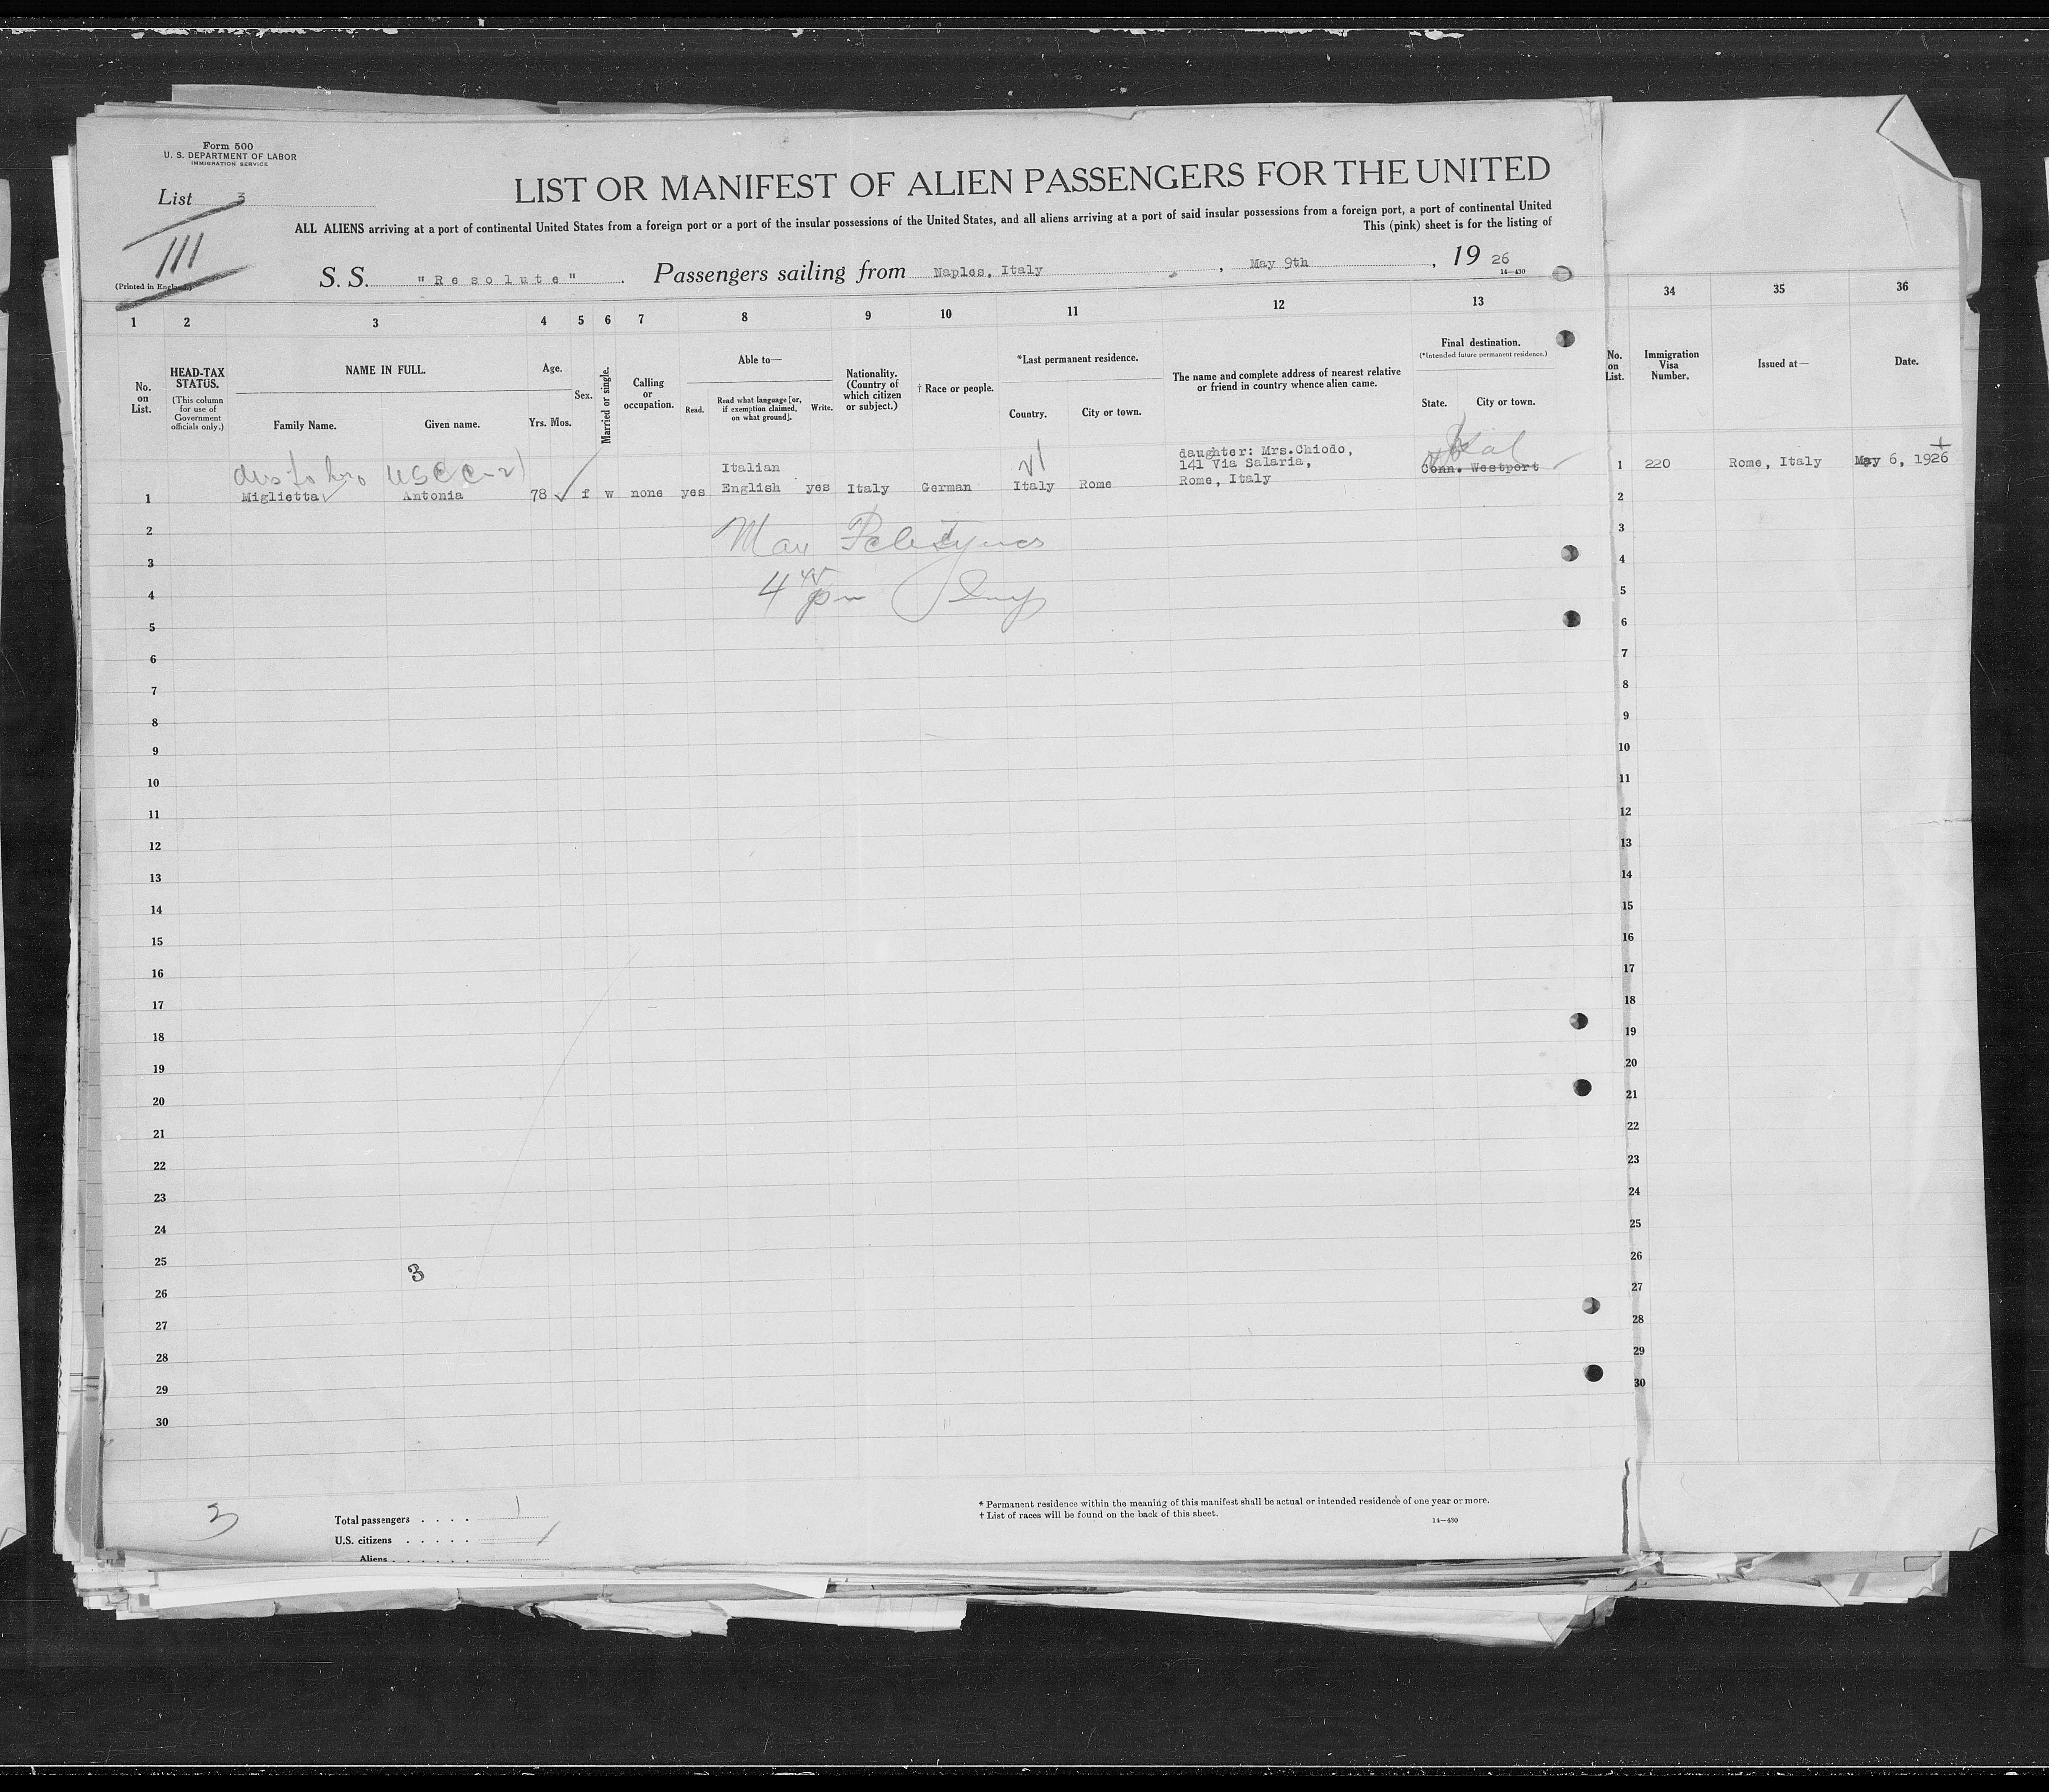 Form 500
U. S. DEPARTMENT OF LABOR
IMMIGRATION SERVICE
List 3
111
(Printed in England.)
LIST OR MANIFEST OF ALIEN PASSENGERS FOR THE UNITED
ALL ALIENS arriving at a port of continental United States from a foreign port or a port of the insular possessions of the United States, and all aliens arriving at a port of said insular possessions from a foreign port, a port of continental United
This (pink) sheet is for the listing of
S. S. "Resolute" . Passengers sailing from Naples, Italy , May 9th , 19 26
14—430
1 2 3 4 5 6 7 8 9 10 11 12 13 34 35 36
No. on List.
HEAD-TAX STATUS.
(This column for use of Government officials only.)
NAME IN FULL.
Family Name. Given name.
Age.
Yrs. Mos.
Sex.
Married or single.
Calling or occupation.
Able to—
Read. Read what language [or, if exemption claimed, on what ground]. Write.
Nationality. (Country of which citizen or subject.)
† Race or people.
*Last permanent residence.
Country. City or town.
The name and complete address of nearest relative or friend in country whence alien came.
Final destination.
(*Intended future permanent residence.)
State. City or town.
No. on List.
Immigration Visa Number.
Issued at—
Date.
1 Miglietta Antonia 78 f w none yes Italian English yes Italy German Italy Rome daughter: Mrs.Chiodo, 141 Via Salaria, Rome, Italy Conn. Westport
1 220 Rome, Italy May 6, 1926
2
3
4
5
6
7
8
9
10
11
12
13
14
15
16
17
18
19
20
21
22
23
24
25
26
27
28
29
30
2
3
4
5
6
7
8
9
10
11
12
13
14
15
16
17
18
19
20
21
22
23
24
25
26
27
28
29
30
3
3
Total passengers . . . . 1
U.S. citizens . . . . .
Aliens . . . . . .
* Permanent residence within the meaning of this manifest shall be actual or intended residence of one year or more.
† List of races will be found on the back of this sheet.
14—430